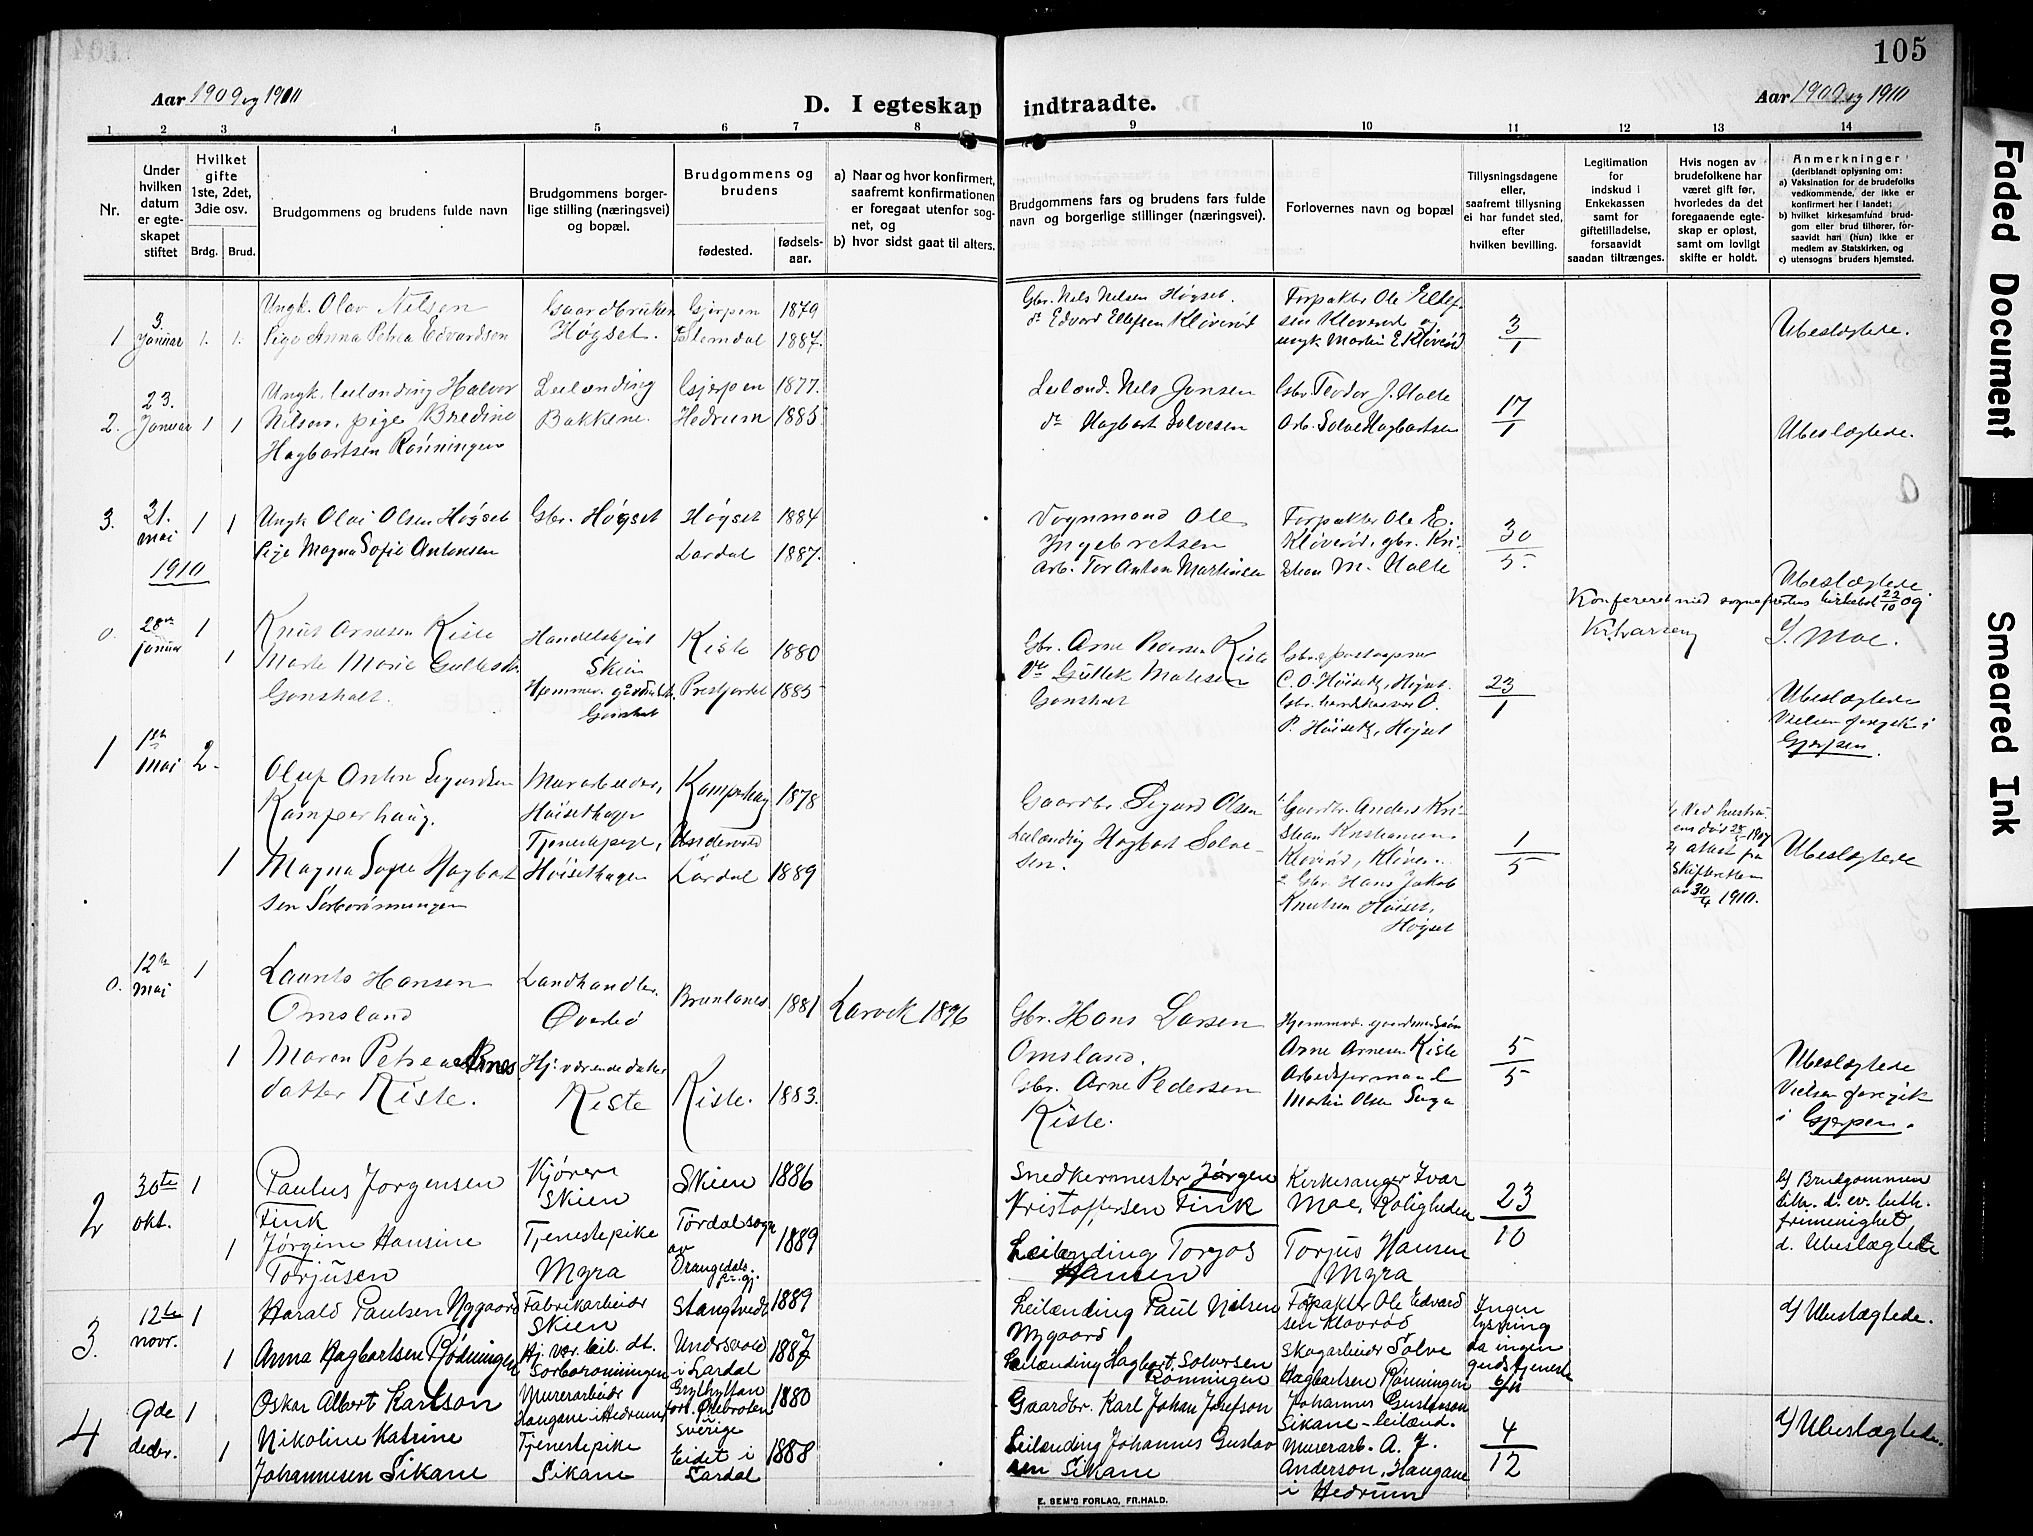 105
Aar 1909 og 1910
D. I egteskap indtraadte.
Aar 1909 og 1910
1 2 3 4 5 6 7 8 9 10 11 12 13 14
Nr.
Under hvilken datum er egteskapet stiftet
Hvilket gifte 1ste, 2det, 3die osv.
Brdg. Brud.
Brudgommens og brudens fulde navn
Brudgommens borgerlige stilling (næringsvei) og bopæl.
Brudgommens og brudens
fødested.
fødselsaar.
a) Naar og hvor konfirmert, saafremt konfirmationen er foregaat utenfor sognet, og
b) hvor sidst gaat til alters.
Brudgommens fars og brudens fars fulde navn og borgerlige stillinger (næringsvei).
Forlovernes navn og bopæl
Tillysningsdagene eller, saafremt tillysning ei har fundet sted, efter hvilken bevilling.
Legitimation for indskud i Enkekassen samt for giftetilladelse, forsaavidt saadan tiltrænges.
Hvis nogen av brudefolkene har været gift før, hvorledes da det foregaaende egteskap er opløst, samt om lovligt skifte er holdt.
Anmerkninger (deriblandt oplysning om:
a) Vaksination for de brudefolks vedkommende, der ikke er konfirmert her i landet;
b) hvilket kirkesamfund brudgom eller brud tilhører, forsaavidt han (hun) ikke er medlem av Statskirken, og
c) utensogns bruders hjemsted.
1 3. Januar 1. 1.
Ungk. Olav Nilsen
Pige Anna Petrea Edvardsen
Gaardbruker
Høgset.
Gjerpen 1879
Slemdal 1887.
Gbr. Nils Nilsen Høgset.
do Edvard Ellefsen Kløverød
Forpakter Ole Ellefsen Kloverød og
ungk Martin E Kløverød
3/1
Ubeslægtede.
2. 23. Januar 1 1
Ungk. leilending Halvor
Nilsen, pige Bredine
Hagbartsen Rønningen
Leilending
Bakkene.
Gjerpen 1877.
Hedrum 1885
Leilænd. Nils Jonsen
do Hagbart Solvesen
Gbr. Teodor J. Holte
Arb. Solve Hagbartsen
17/1
Ubeslægtede.
3. 31. mai 1 1
Ungk Olai Olsen Høgset
Pige Magna Sofie Antonsen
Gbr. Høgset
Høgset 1884
Lardal 1887.
Vognmand Ole
Ingebretsen
Arb. Tor Anton Martinsen
Forpakter Ole E.
Kløverød, gbr. Kristian M. Holte
30/5.
Ubeslægtede
1910
Konfereret med sogneprestens kirkebok 22/10 09
I. Moe.
0. 28de januar 1 1
Knut Arnesen Kiste
Marte Marie Gulleksdtr
Gonsholt.
Handelsbetjent
Skien
Hjemmev. gårdbr.dt.
Gonsholt
Kiste 1880
Presfjordal 1885
Gbr. Arne Pedersen Kiste
do Gullek Matesen
Gonsholt
Gbr. & postaapner
C. O. Høiseth, Høgset.
P. Høiseth, Høgset
23/1
Ubeslægtede
Vielsen foregik i
Gjerpen.
1 1ste Mai 2- 1
Oluf Anton Sigurdsen
Kamperhaug.
Magna Sofie Hagbartsen Sørborønningen
Murarbeider,
Høisethagen
Tjenestepige,
Høisethagen
Kamperhaug 1878
Undersvold
Lardal 1889
Gaardbr. Sigurd Olsen
Leilænding Hagbart Solvesen.
1 Gaardbr. Anders Kristian Kristiansen
Kløverød, Kløver-
2 Gbr. Hans Jakob
Knutsen Høiset,
Høgset
1/5
1 Ved hustruens død 1907
2 attest fra
Skifteretten
av 30/4 1910.
Ubeslægtede
0. 12te mai 1 1
Laurits Hansen
Omsland
Maren Petrea Arnes
datter Kiste.
Landhandler.
Øverbø
Hj: værende datter
Kiste
Brunlanes 1881
Kiste. 1883.
Larvik 1896
Gbr. Hans Larsen
Omsland.
Gbr. Arne Pedersen
Kiste.
Hjemmev. gaardmandssøn
Arne Arnesen Kiste
Arbeidsformand
Martin Olsen
5/5
Ubeslægtede
Vielsen foregik
i Gjerpen.
2 30te okt. 1 1
Paulus Jørgensen
Fink
Jørgine Hansine
Torjusen
Kjører
Skien
Tjenestepike
Myra
Skien 1886
Tørdal sogn
av
Drangedals
pr.gj. 1889
Snedkermester Jørgen
Kristoffersen Fink
Leilænding Torjus
Hansen
Kirkesanger Ivar
Moe, Roligheden
Torjus Hansen
Myra
23/10
b) Brudgommen
tilh. d. ev. luth.
frimenighet
d. Ubeslægtede
3. 12te novr. 1 1
Harald Paulsen Nygaard
Anna Hagbartsen Rødningen
Fabrikarbeider
Skien
Hj. vær. leil. dt.
Sørborønningen
Slangtvedt 1889
Undersvold
i Lardal 1887
Leilænding Paul Nilsen
Nygaard
Leilænding Hagbart Solvesen
Rønningen
Forpakter Ole Edvardsen Kloverød
Skogarbeider Solve
Hagbartsen Rønningen
Ingen
lysning
da ingen
gudstjeneste
6/11
d/ Ubeslægtede.
4 9de decbr. 1 1
Oskar Albert Karlson
Nikoline Katrine
Johannesen Sikane
Murerarbeider
Haugane i Hedrum
Tjenestepike
Sikane
Sverige 1880
Eidet i
Lardal 1888
Gaardbr. Karl Johan Josefson
Leilænding Johannes Gustavsen Sikane
Johannes Gustavson
Sikane - leilænd.
Murerarb. A. J.
Anderson, Haugane
i Hedrum
4/12
d/ Ubeslægtede.
E. SEM'S FORLAG, FR.HALD.
Faded Document
Smeared Ink